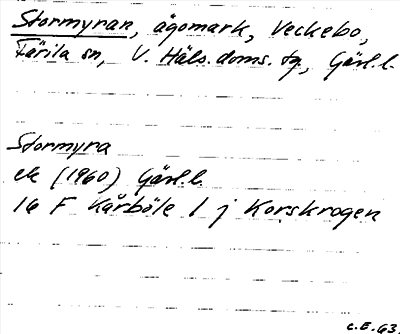 Stormyran, ägomark, Veckebo,
Färila sn, V. Häls. doms. tg., Gävl.l.
Stormyra
ek (1960) Gävl.l.
16 F Kårböle 1 j Korskrogen
C.E. 63.